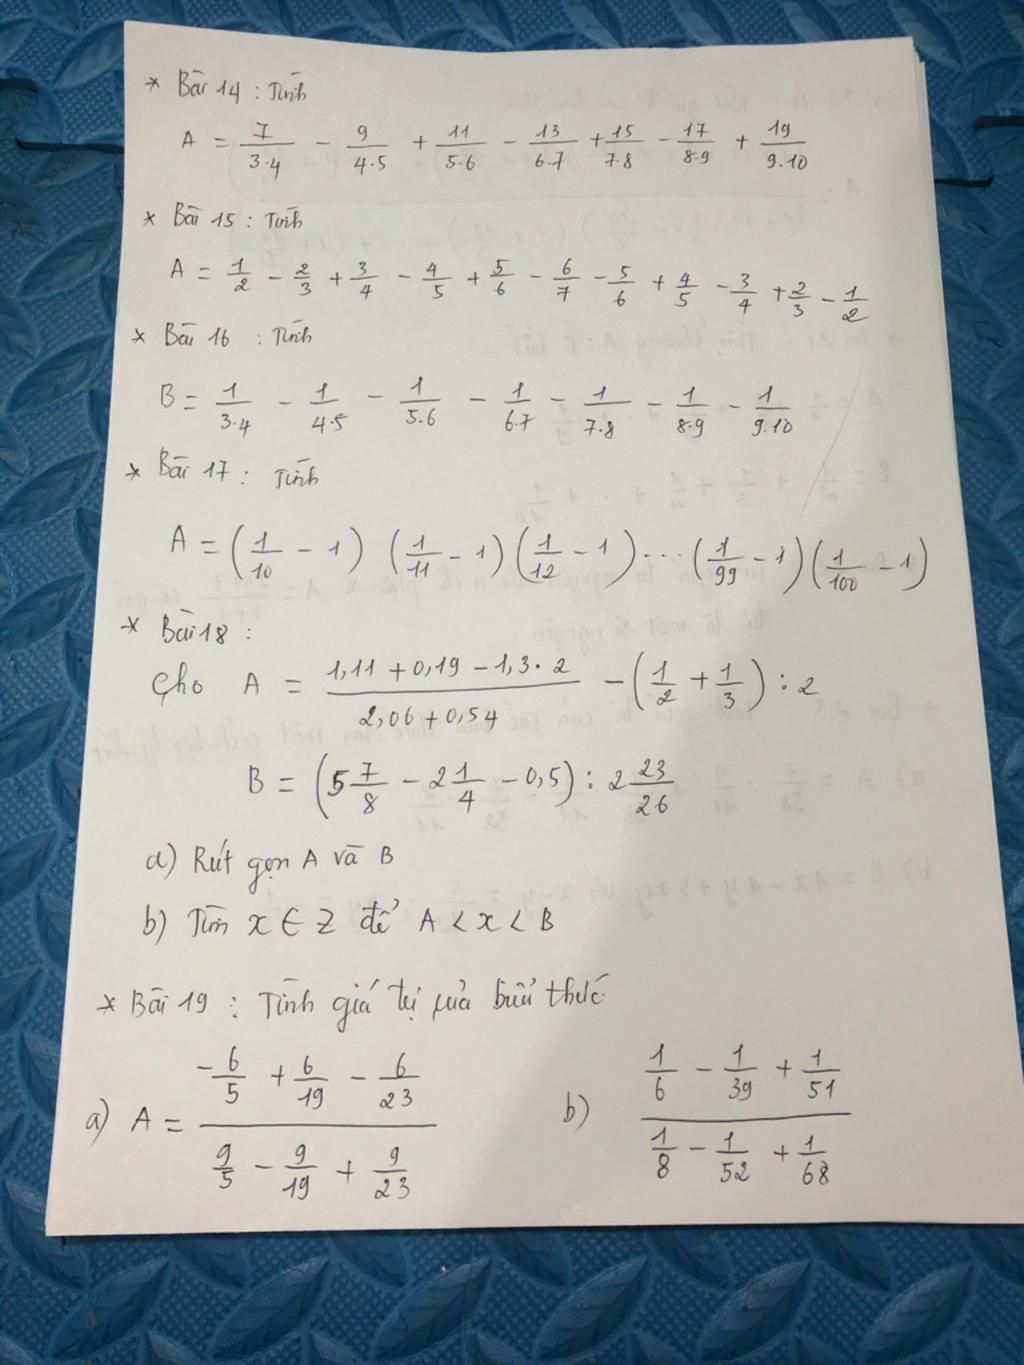 * Bài 14 : Tính
A = 7/3.4 - 9/4.5 + 11/5.6 - 13/6.7 + 15/7.8 - 17/8.9 + 19/9.10
* Bài 15 : Tính
A = 1/2 - 2/3 + 3/4 - 4/5 + 5/6 - 6/7 - 5/6 + 4/5 - 3/4 + 2/3 - 1/2
* Bài 16 : Tính
B = 1/3.4 - 1/4.5 - 1/5.6 - 1/6.7 - 1/7.8 - 1/8.9 - 1/9.10
* Bài 17 : Tính
A = (1/10 - 1) (1/11 - 1) (1/12 - 1) ... (1/99 - 1) (1/100 - 1)
* Bài 18 :
Cho A = (1,11 + 0,19 - 1,3 . 2)/(2,06 + 0,54) - (1/2 + 1/3) : 2
B = (5 7/8 - 2 1/4 - 0,5) : 2 23/26
a) Rút gọn A và B
b) Tìm x ∈ Z để A < x < B
* Bài 19 : Tính giá trị của biểu thức
a) A = (-6/5 + 6/19 - 6/23)/(9/5 - 9/19 + 9/23) b) (1/6 - 1/39 + 1/51)/(1/8 - 1/52 + 1/68)